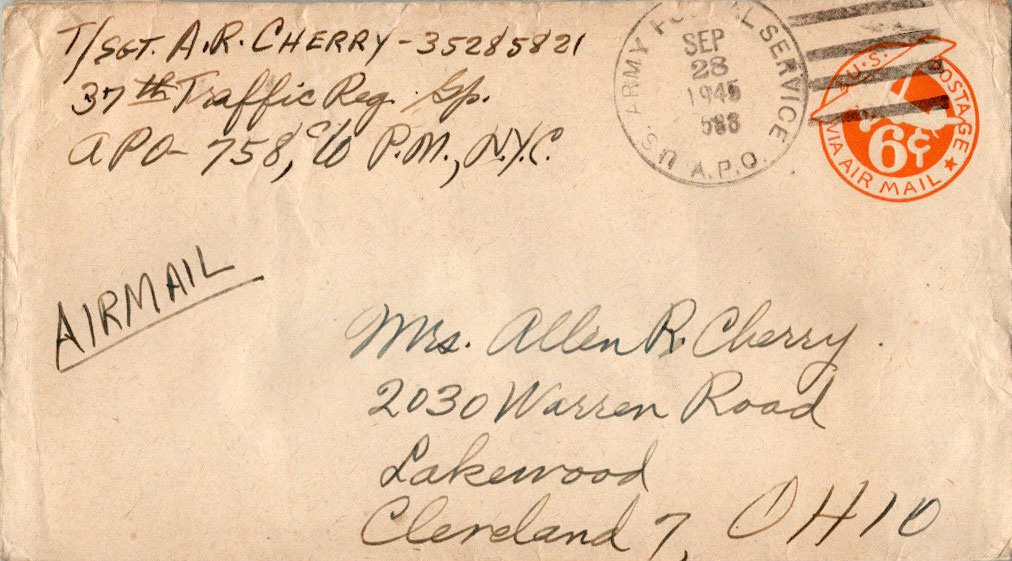 T/SGT. A.R. CHERRY - 35285821
37th Traffic Reg. Gp.
APO - 758, c/o P.M., N.Y.C.
U.S. ARMY POSTAL SERVICE
SEP
28
1945
A.P.O.
U.S. POSTAGE
6¢
VIA AIR MAIL
AIRMAIL
Mrs. Allen R. Cherry
2030 Warren Road
Lakewood
Cleveland 7, OHIO